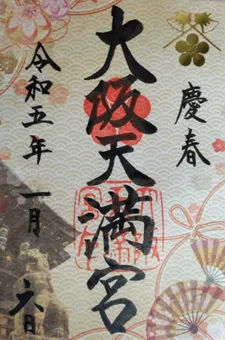 慶春
大阪天満宮
令和五年 一月 六日